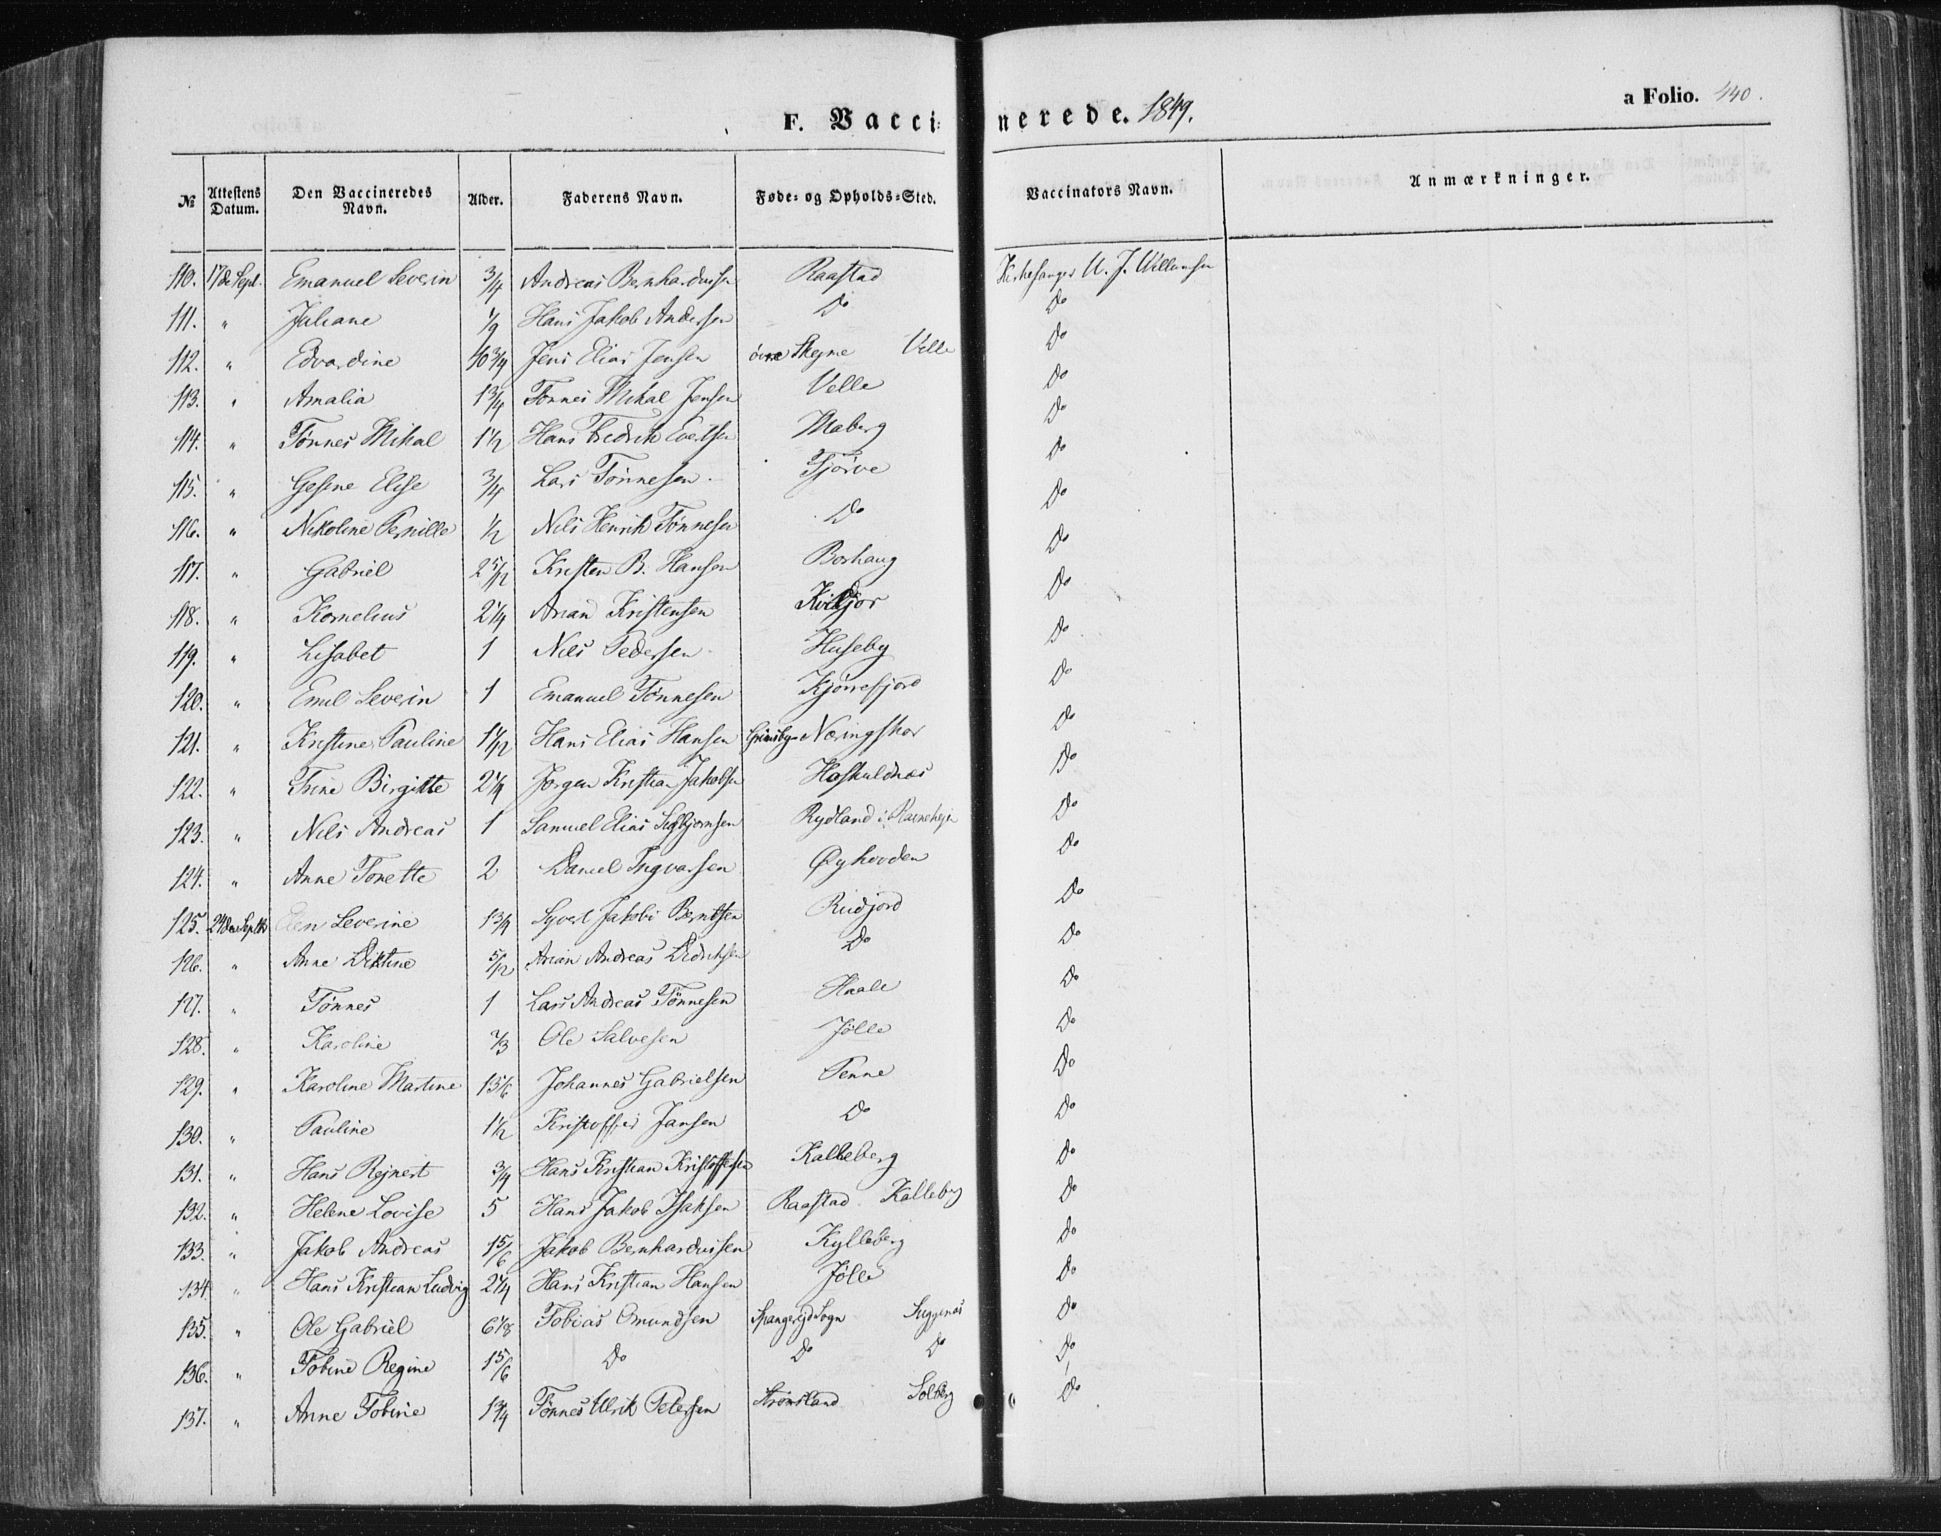 a Folio. 440.
F. Vaccinerede. 1849.
№ Attestens Datum. Den Vaccineredes Navn. Alder. Faderens Navn. Føde- og Opholds-Sted. Vaccinators Navn. Anmærkninger.
110. 17de Sept. Emanuel Severin 3/4 Andreas Bernhardussen Raastad Kirkesanger U. J. Willumsen
111. " Juliane 1/9 Hans Jakob Andersen Do Do
112. " Edvardine 10 3/4 Jens Elias Jensen øvre Skeyne Velle Do
113. " Amalia 1 3/4 Tønnes Mikal Jensen Velle Do
114. " Tønnes Mikal 1 1/2 Hans Fredrik Evertsen Maberg Do
115. " Gesine Elise 3/4 Lars Tønnesen Tjørve Do
116. " Nikoline Pernille 1/2 Nils Henrik Tønnesen Do Do
117. " Gabriel 2 5/12 Kristen B. Hansen Borhaug Do
118. " Kornelius 2 1/4 Arian Kristensen Do
119. " Lisabet 1 Nils Pedersen Huseby Do
120. " Emil Severin 1 Emanuel Tønnesen Kjørrefjord Do
121. " Kristine Pauline 1 1/12 Hans Elias Hansen Grimsbye Næringskor Do
122. " Trine Birgitte 2 1/4 Jørgen Kristian Jakobsen Haskuldnæs Do
123. " Nils Andreas 1 Samuel Elias Sigbjørnsen Rydland i Do
124. " Anne Tonette 2 Daniel Ingvarsen Øyhovden Do
125. 24de Septbr Elen Severine 1 3/4 Syvert Jakobi Berntsen Rudjord Do
126. " Anne Diktine 5/12 Arian Andreas Didriksen Do Do
127. " Tønnes 1 Lars Andreas Tønnesen Haale Do
128. " Karoline 2/3 Ole Salvesen Jølle Do
129. " Karoline Martine 1 5/6 Johannes Gabrielsen Penne Do
130. " Pauline 1 1/2 Kristoffer Jansen Do Do
131. " Hans Rejnert 3/4 Hans Kristian Kristoffersen Kalleberg Do
132. " Helene Lovise 5 Hans Jakob Isaksen Raastad Kalleberg Do
133. " Jakob Andreas 1 5/6 Jakob Bernhardussen Kylleberg Do
134. " Hans Kristian Ludvig 2 1/4 Hans Kristian Hansen Jølle Do
135. " Ole Gabriel 6 1/8 Tobias Omundsen Spangerejd Sogn Siggenæs Do
136. " Tobine Regine 1 5/6 Do Do Do Do
137. " Anne Tobine 1 3/4 Tønnes Ulrik Petersen Strømsland Solberg Do